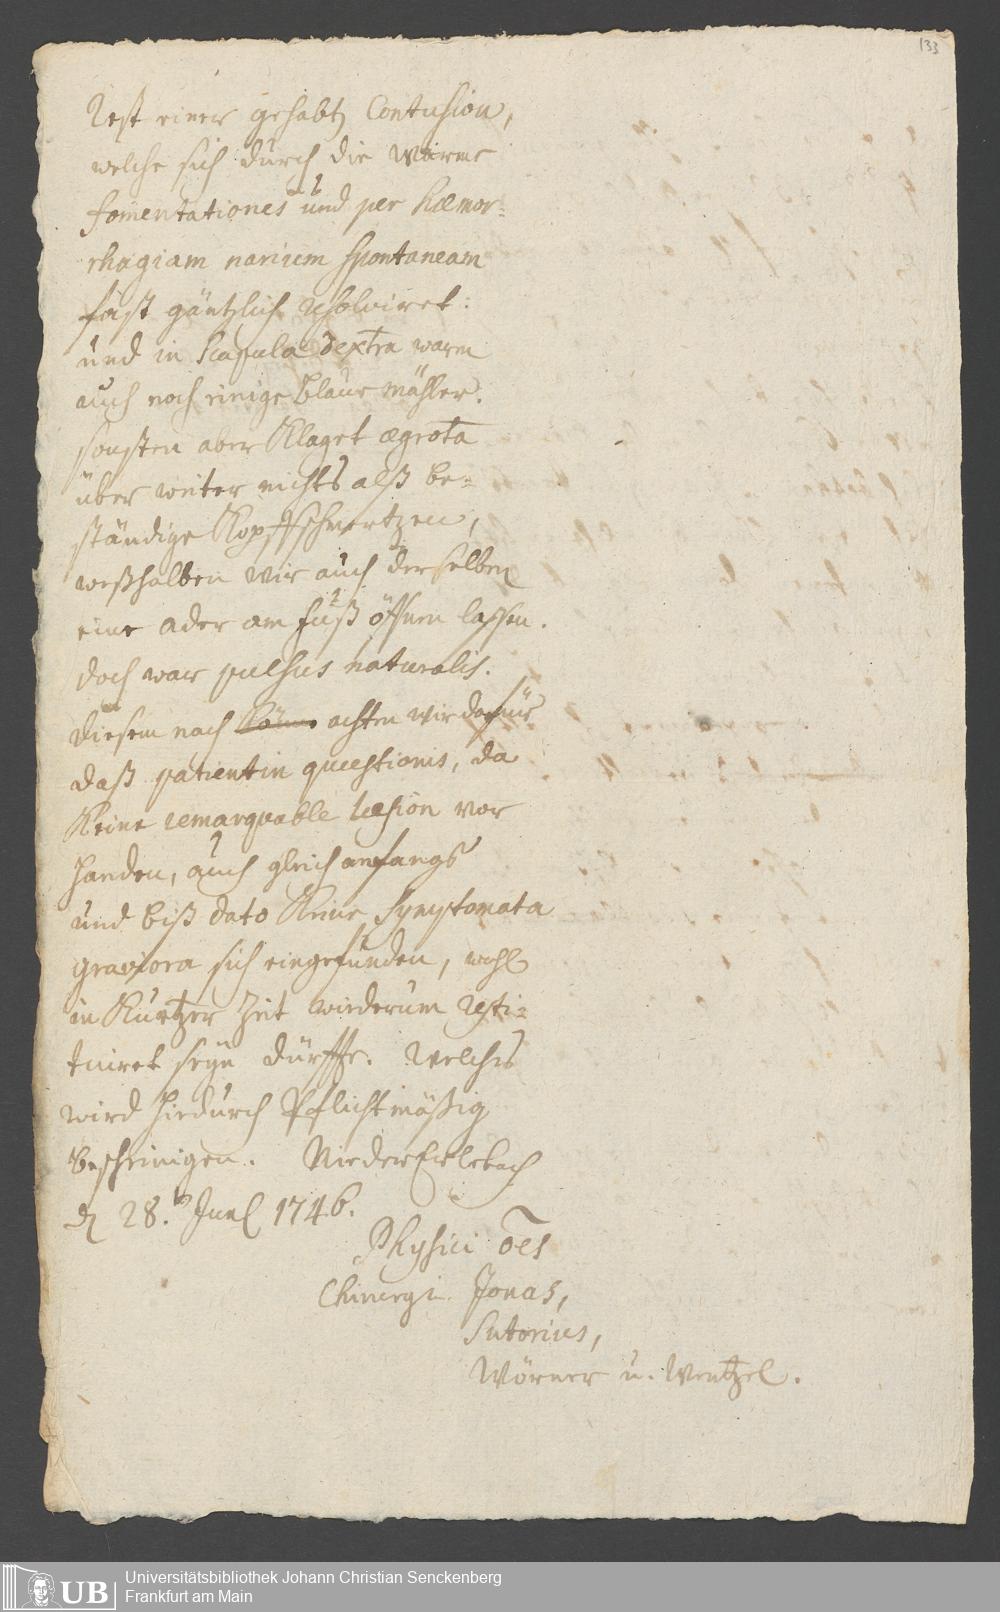 133
Rest einer gehabtn Contusion,
welche sich durch die warme
fomentationes und per hæmor-
rhagiam narium spontaneam
fast gäntzlich resolviret:
und in scapula dextra waren
auch noch einige blaue mähler.
sonsten aber klaget ægrota
über weiter nichts alß be-
ständige Kopffschmertzen,
weßhalben wir auch derselben
eine ader am fuß öffnen lassen.
doch war pulsus naturalis.
diesem nach achten wir dafür
daß patientin quæstionis, da
keine remarquable læsion vor
handen, auch gleich anfangs
und biß dato keine symptomata
graviora sich eingefunden, wohl
in kurtzer Zeit wiederum resti-
tuiret seyn dürffe. Welches
wird hiedurch Pflichtmäßig
bescheinigen. NiederErlebach
d 28. Junl 1746.
Physici ões
Chirurgi. Jonas,
Sutorius,
Wörner u. Wentzel.
Universitätsbibliothek Johann Christian Senckenberg
UB Frankfurt am Main